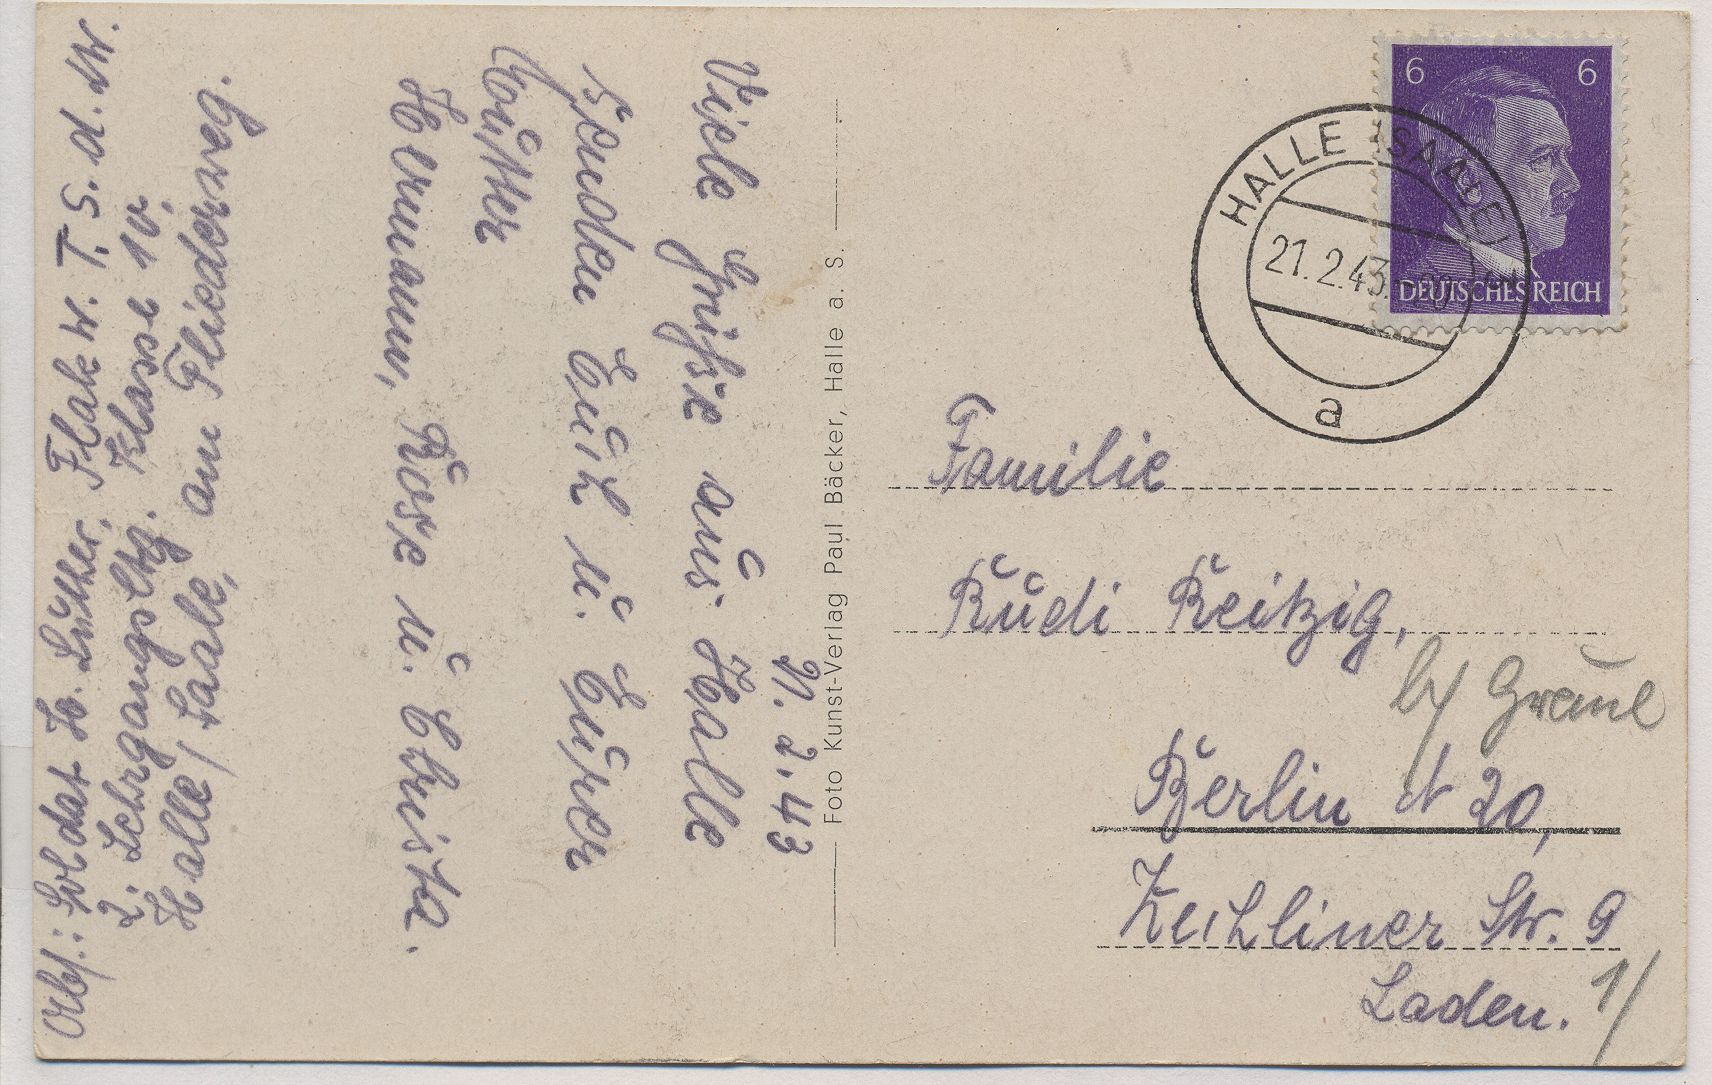 Abs.: Soldat H. Lüther, Flak W. T. S. d. W.
2. Lehrgangsltg. Klasse 10,
Halle/Saale, am Fliederweg.
21. 2. 43
Viele Grüße aus Halle
senden Euch u. Eurer
Mutter
Hermann, Rose u. Christa.
Foto Kunst-Verlag Paul Bäcker, Halle a. S.
6 6
DEUTSCHES REICH
HALLE (SAALE)
21.2.43
a
Familie
Rudi Reitzig,
b/ Graul
Berlin N 20,
Zechliner Str. 9
Laden. 1/